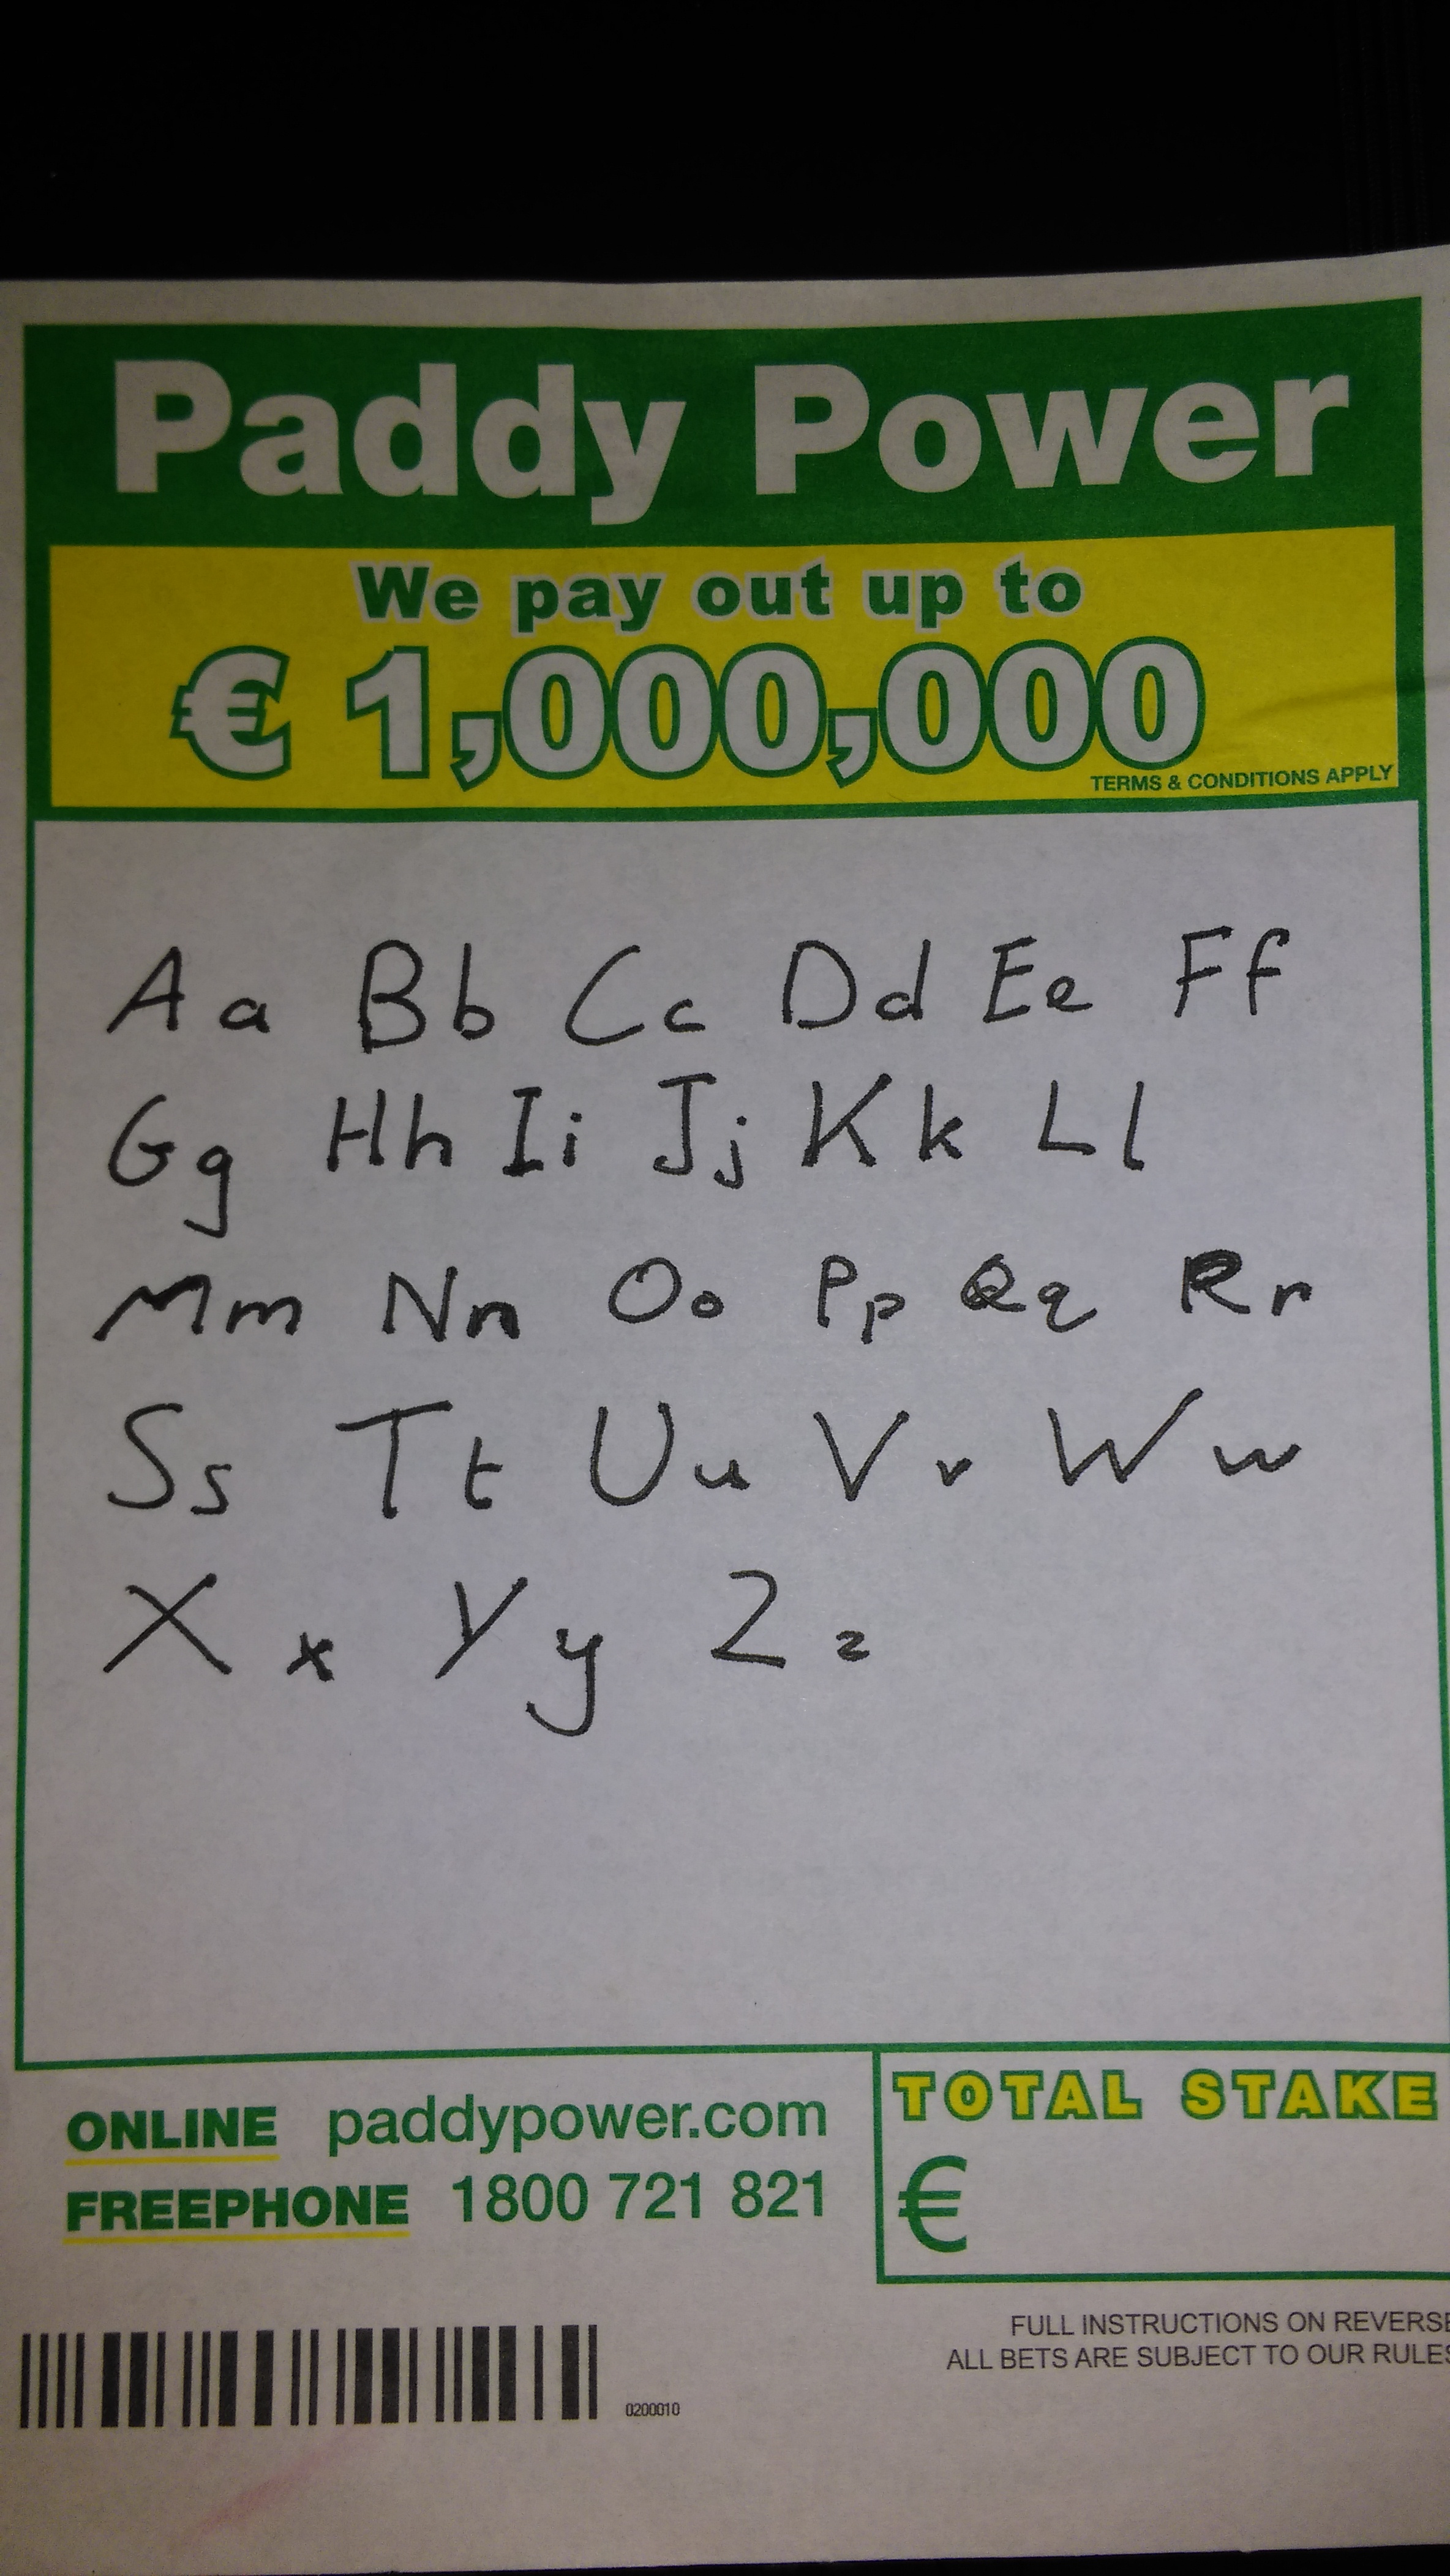 Paddy Power
We pay out up to
€ 1,000,000
TERMS & CONDITIONS APPLY
Aa Bb Cc Dd Ee Ff
Gg Hh Ii Jj Kk Ll
Mm Nn Oo Pp Qq Rr
Ss Tt Uu Vv Ww
Xx Yy Zz
ONLINE paddypower.com
FREEPHONE 1800 721 821
TOTAL STAKE
€
FULL INSTRUCTIONS ON REVERSE
ALL BETS ARE SUBJECT TO OUR RULES
0200010